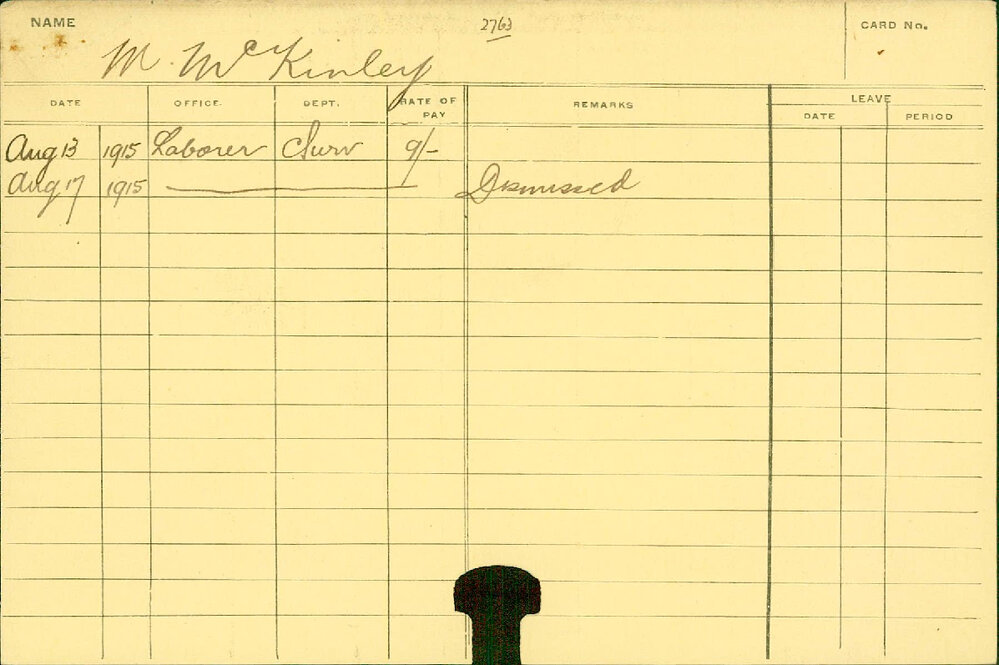 NAME
2763
CARD No.
M. McKinley
DATE OFFICE. DEPT. RATE OF PAY REMARKS LEAVE
DATE PERIOD
Aug 13 1915 Laborer Surv 9/-
Aug 17 1915 Dismissed